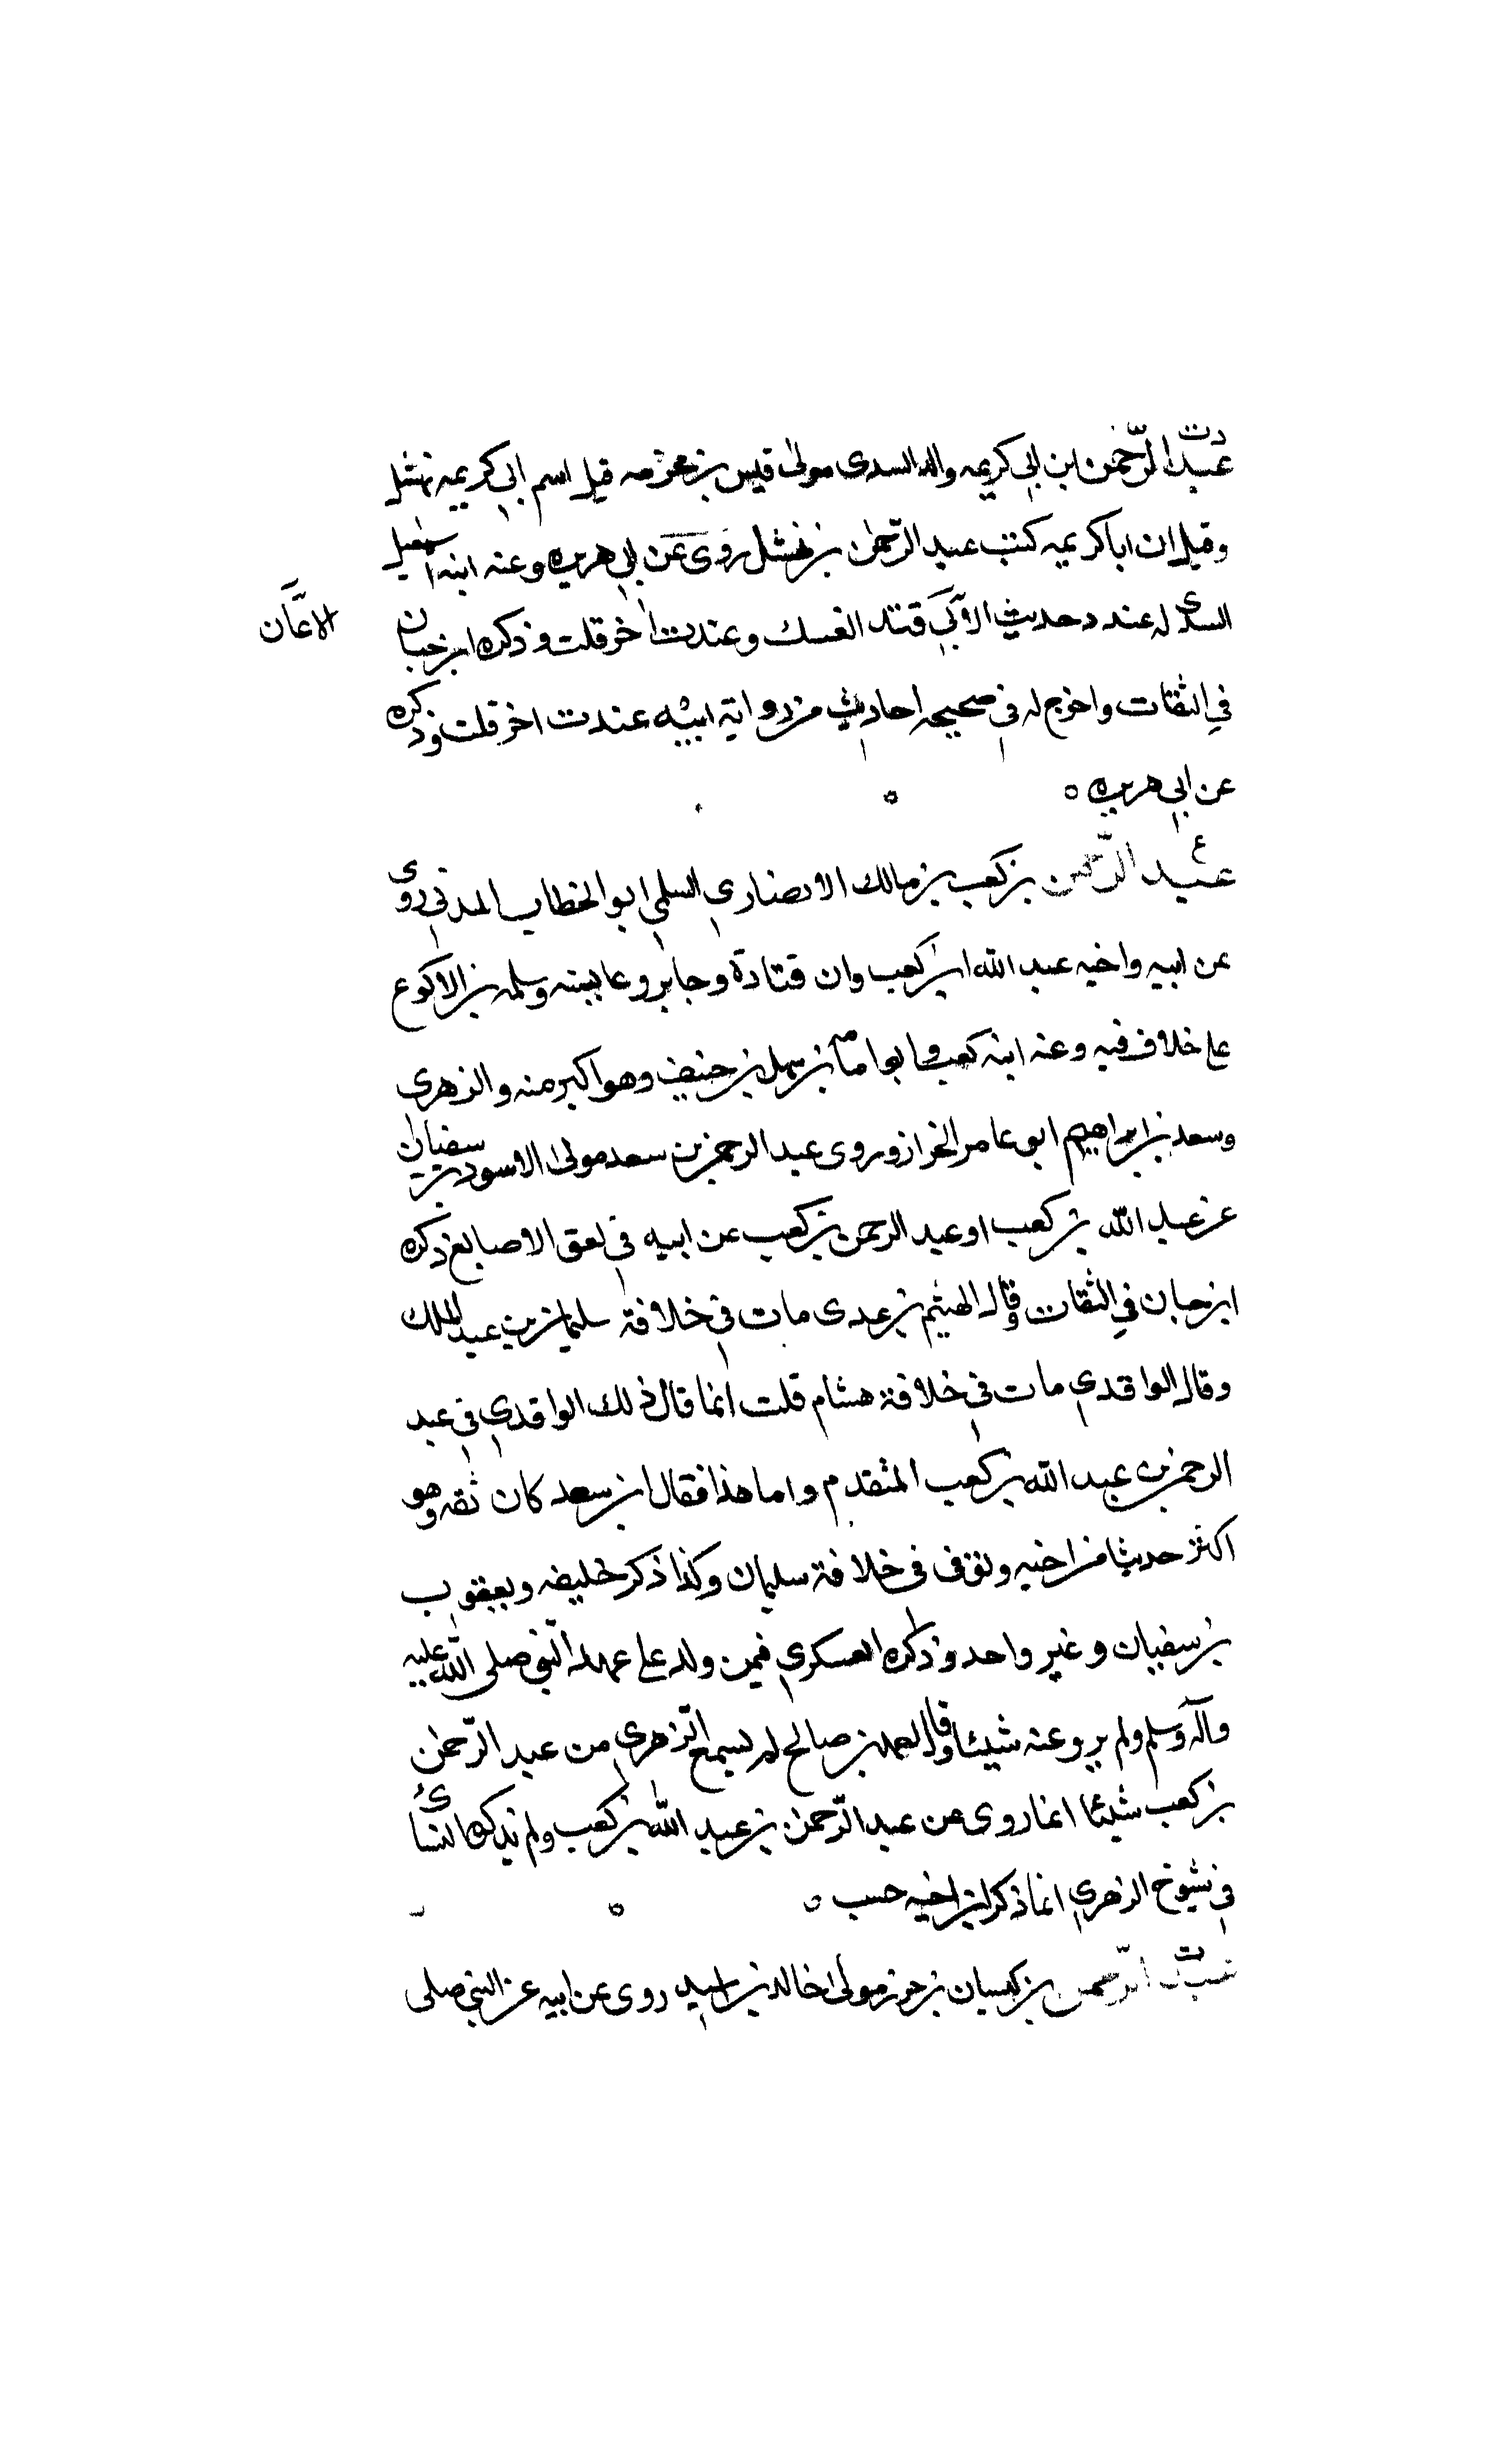 د ت
عبد الرحمن ابن ابي كريمه والد السدى مولى قيس بن مخرمه قيل اسم ابي كريمه نهشل
وقيل ان ابا كريمه كنيت عبد الرحمن بن نهشل روى عن ابي هريره وعنه ابنه اسمعيل
السدى له عند د حديث الايمان قيد الفتك وعند ت اخر قلت وذكره ابن حبان
الايمان
في الثقات واخرج له في صحيحه احاديث من رواية ابنه عند ت اخر قلت وذكره
عن ابي هريره ٥
ع
عبد الرحمن بن كعب بن مالك الانصاري السلمي ابو الخطاب المدني روى
عن ابيه واخيه عبد الله ابن كعب وابي قتادة وجابر وعايشه وسلمه بن الاكوع
على خلاف فيه وعنه ابنه كعب وابو امامه بن سهل بن حنيف وهو اكبر منه والزهري
وسعد بن ابراهيم ابو عامر الخزاز وروى عبد الرحمن بن سعد مولى الاسود بن سفيان
عن عبد الله بن كعب او عبد الرحمن بن كعب عن ابيه في لعق الاصابع ذكره
ابن حبان في الثقات وقال الهيثم بن عدى مات في خلافة سليمان بن عبد الملك
وقال الواقدي مات في خلافة هشام قلت انما قال ذلك الواقدي في عبد
الرحمن بن عبد الله بن كعب المتقدم واما هذا فقال ابن سعد كان ثقه وهو
اكثر حديثا من اخيه وتوفى في خلافة سليمان وكذا ذكر خليفه ويعقوب
بن سفيان وغير واحد وذكره العسكري فيمن ولد على عهد النبي صلى الله عليه
وآله وسلم ولم يرو عنه شيئا وقال احمد بن صالح لم يسمع الزهري من عبد الرحمن
بن كعب شيئا انما روى عن عبد الرحمن بن عبد الله بن كعب ولم يذكر النسائي
في شيوخ الزهري انما ذكر ابن اخيه حسب ٥
عبد الرحمن بن كيسان بن جرير مولى خالد بن اسيد روى عن ابيه عن النبي صلى